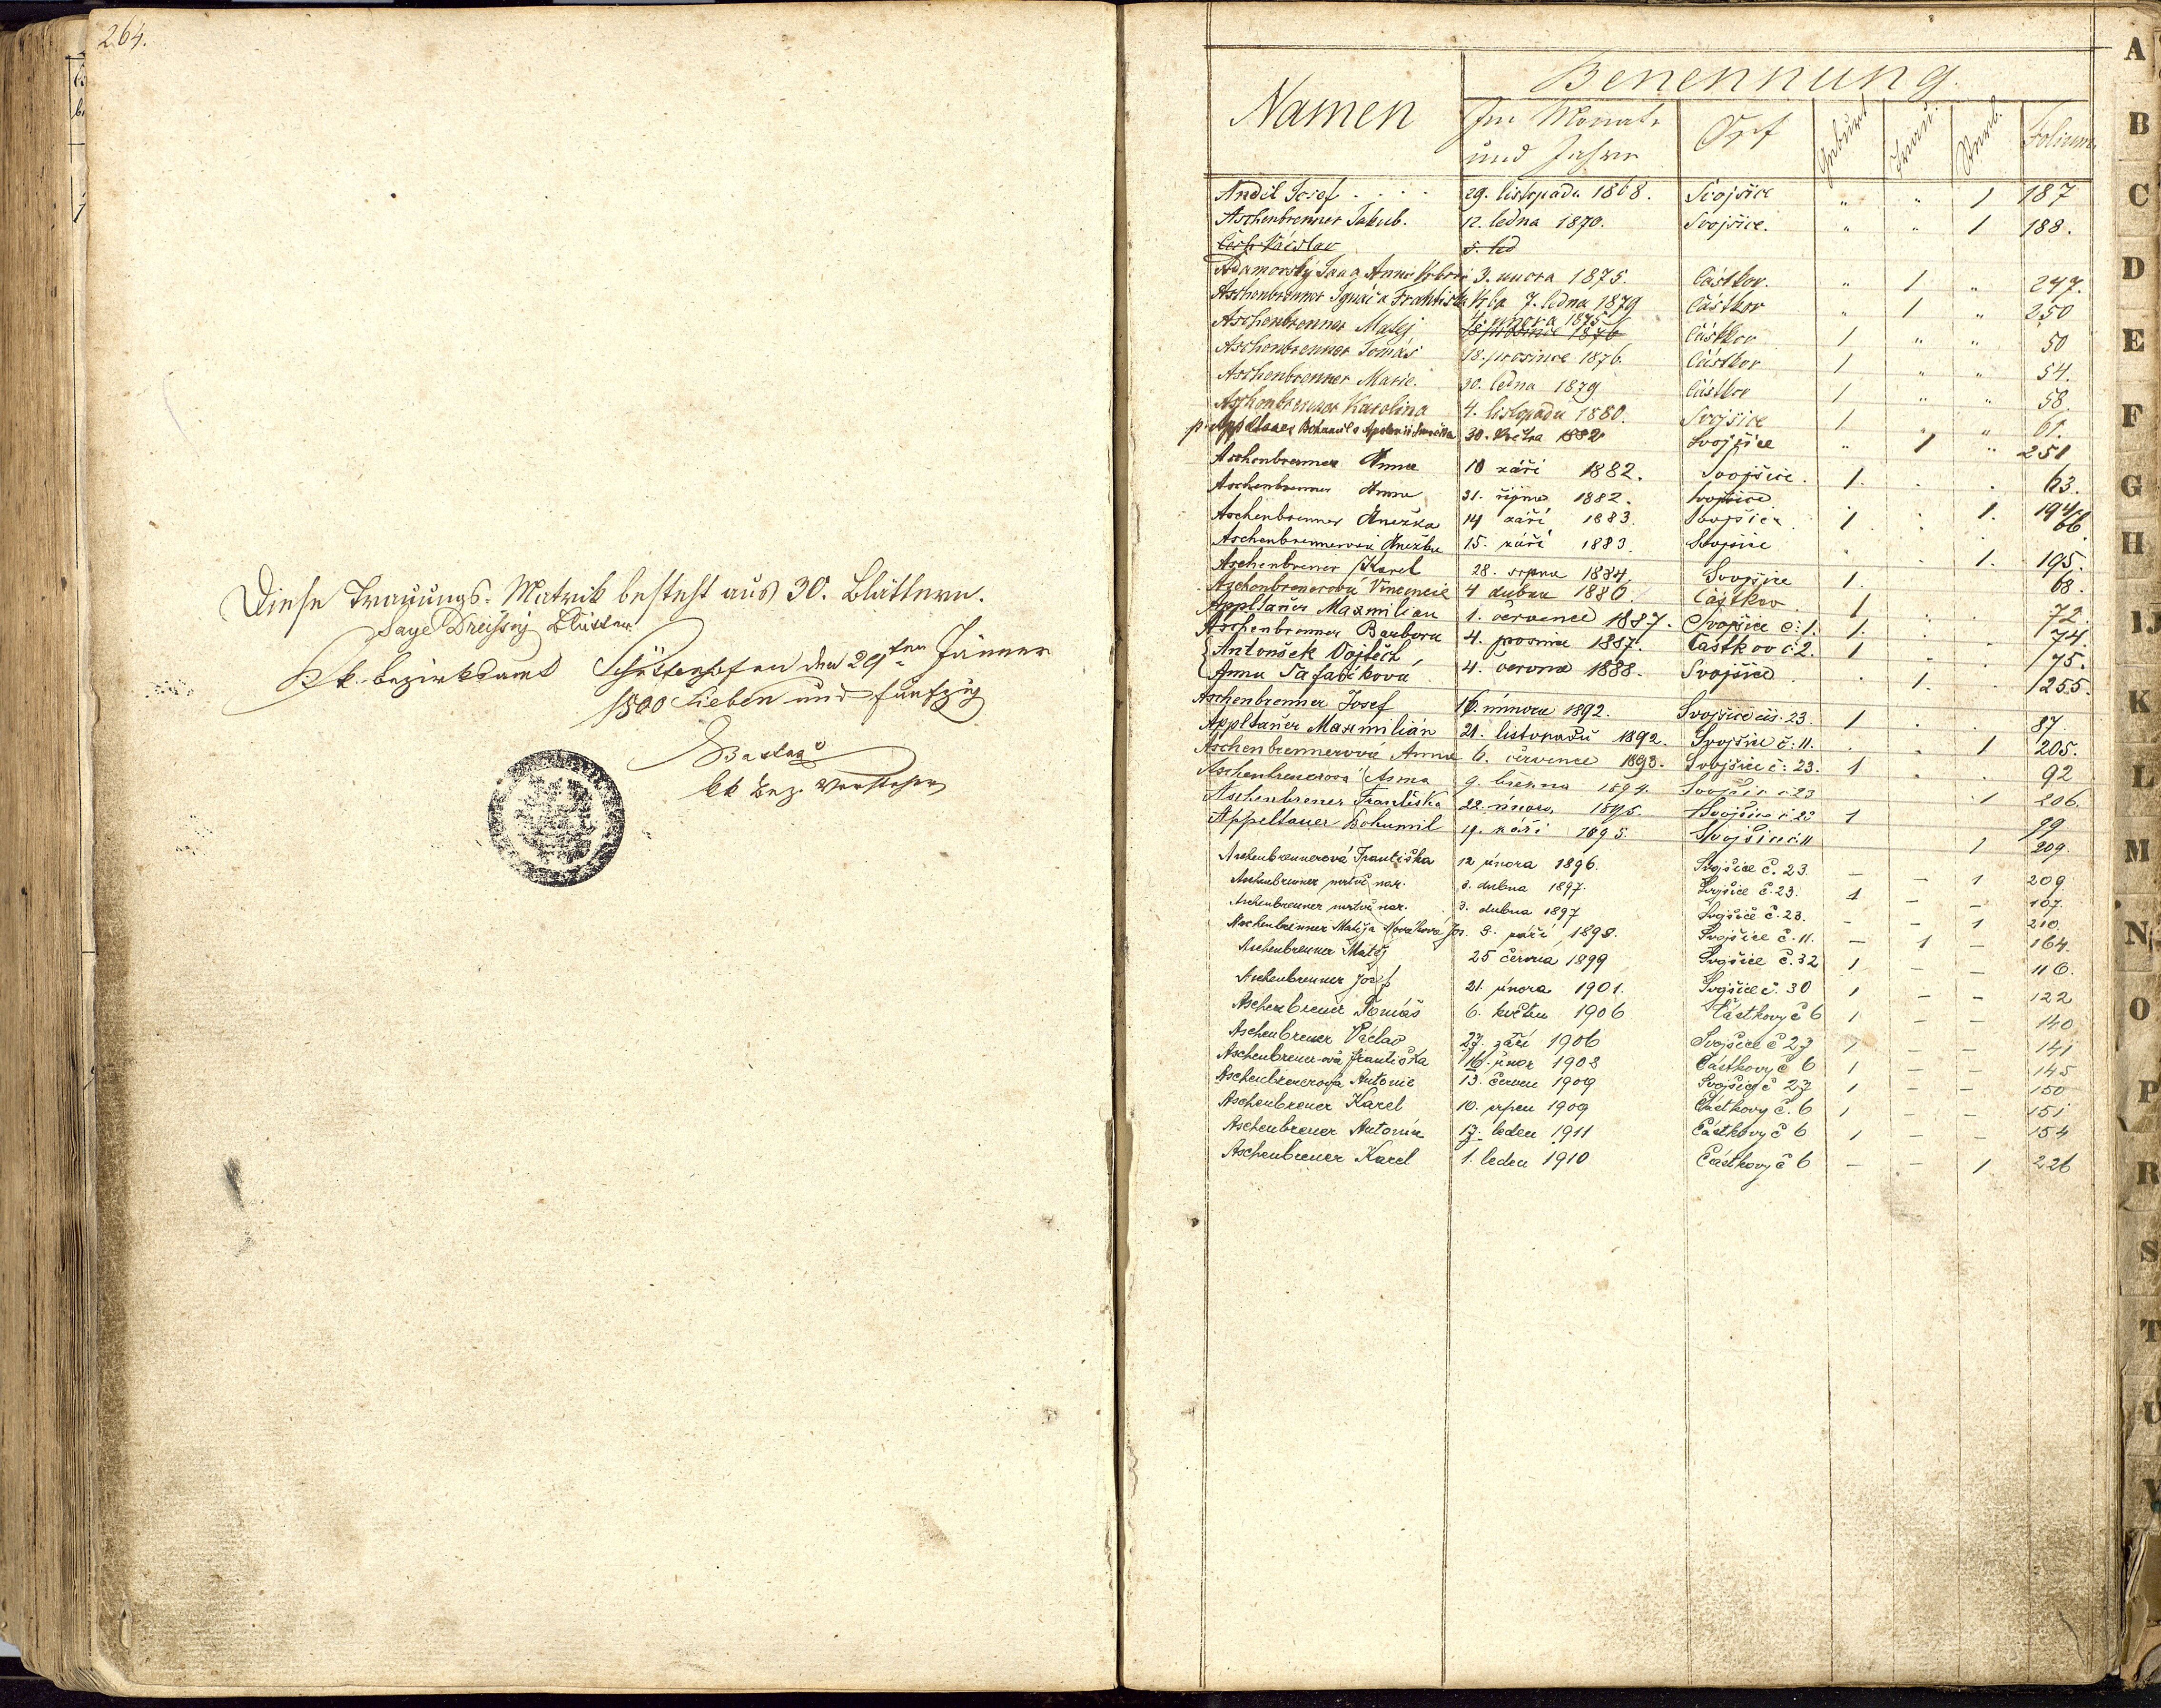 264.
Diese Trauungs-Matrik besteht aus 30. Blättern.
Sage Dreißig Blätter
K. k. Bezirksamt Schüttenhofen den 29ten Jänner
1800 sieben und fünfzig
kk Bez. Vorsteher
Namen
Benennung.
Im Monate und Jahre
Ort
Geburt
Trau:
Sterb.
Folium
Anděl Josef . . . . 29. listopadu 1868. Svojšice " " 1 187
Aschenbrenner Jakub. 12. ledna 1870. Svojšice. " " 1 188.
Čech Václav 5. led
Adamovský Jan a Anna 3. února 1875. Částkov. " 1 " 247.
Aschenbrenner Ignác a Františka 7. ledna 1879 Částkov " 1 " 250
Aschenbrenner Matěj 4. února 1875 18 prosince 1876 Částkov 1 " " 50
Aschenbrenner Tomáš 18. prosince 1876. Částkov 1 " " 54.
Aschenbrenner Marie. 30. ledna 1879 Částkov 1 " " 58.
Aschenbrenner Karolina 4. listopadu 1880. Svojšice 1 " " 61.
Appeltauer Bohumil a 30. května 1882 Svojšice " 1 " 251
Aschenbrenner Anna 10 září 1882. Svojšice. 1. . . 63.
Aschenbrenner Anna 31. října 1882. Svojšice . . 1. 194
Aschenbrenner Anežka 14 září 1883. Svojšice 1 . . 66.
Aschenbrennerová Anežka 15. září 1883. Svojšice . . 1. 195.
Aschenbrener Karel 28. srpna 1884 Svojšice 1. 68.
Aschenbrenerová Vincencie 4 dubna 1886. Částkov. 1 . . 72.
Appltauer Maxmilian 1. července 1887. Svojšice č: 1. 1. . . 74
Aschenbrenner Barbora 4. prosince 1887. Částkov č 2. 1 . . 75.
Antonšek Vojtěch,
Anna Šafaříková 4. června 1888. Svojšice . 1. . 255.
Aschenbrenner Josef 16. února 1892. Svojšice čís. 23. 1 . . 87
Appltauer Maxmilián 21. listopadu 1892. Svojšice č: 11. . . 1 205.
Aschenbrennerová Anna 6. července 1893. Svojšice č: 23. 1 . . 92
Aschenbrenerová Anna 9. března 1894. Svojšice č 23 1 206.
Aschenbrener Františka 22. února 1895. Svojšice č 23 1 99
Appeltauer Bohumil 19. září 1895. Svojšice č. 11 1 209.
Aschenbrennerová Františka 12 února 1896. Svojšice č. 23. – – 1 209
Aschenbrenner mrtvě nar. 3. dubna 1897. Svojšice č. 23. 1 – – 107.
Aschenbrenner mrtvě nar. 3. dubna 1897 Svojšice č. 23. – – 1 210.
Aschenbrenner Matěj a Nováková Jos. 3. září 1898. Svojšice č. 11. – 1 – 164.
Aschenbrenner Matěj 25 června 1899 Svojšice č. 32 1 – – 116.
Aschenbrenner Josef 21. února 1901. Svojšice č. 30 1 – – 122
Aschenbrener Tomáš 6. květen 1906 Částkovy č 6 1 – – 140
Aschenbrener Václav 27. září 1906 Svojšice č 27 1 – – 141
Aschenbrener-ová Františka 16. únor 1908 Částkovy č 6 1 – – 145
Aschenbrenerová Antonie 13. červen 1909 Svojšice č 27 1 – – 150
Aschenbrener Karel 10. srpen 1909 Částkovy č. 6 1 – – 151
Aschenbrener Antonín 17. leden 1911 Částkovy č 6 1 – – 154
Aschenbrener Karel 1. leden 1910 Částkovy č 6 – – 1 226
A
B
C
D
E
F
G
H
IJ
K
L
M
N
O
P
R
S
T
U
V